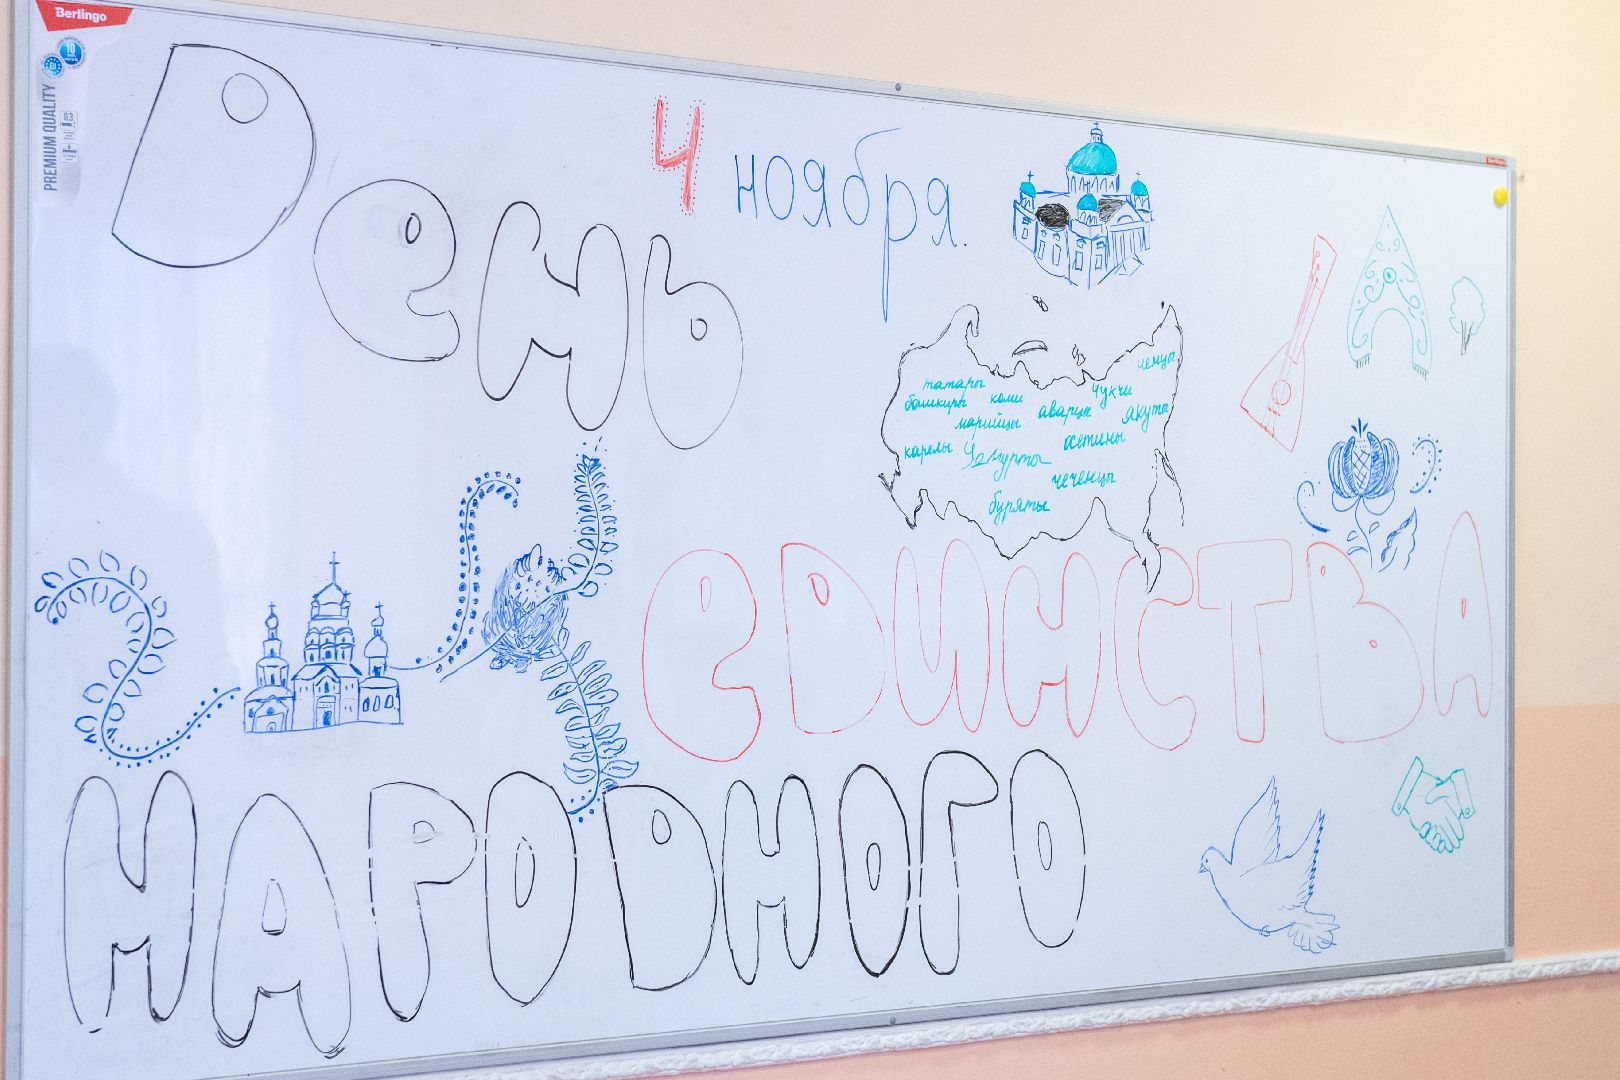 Berlingo
PREMIUM QUALITY
День
4 ноября.
ненцы
татары
чукчи
башкиры коми
аварцы якуты
марийцы
осетины
карелы
чеченцы
буряты
единства
народного